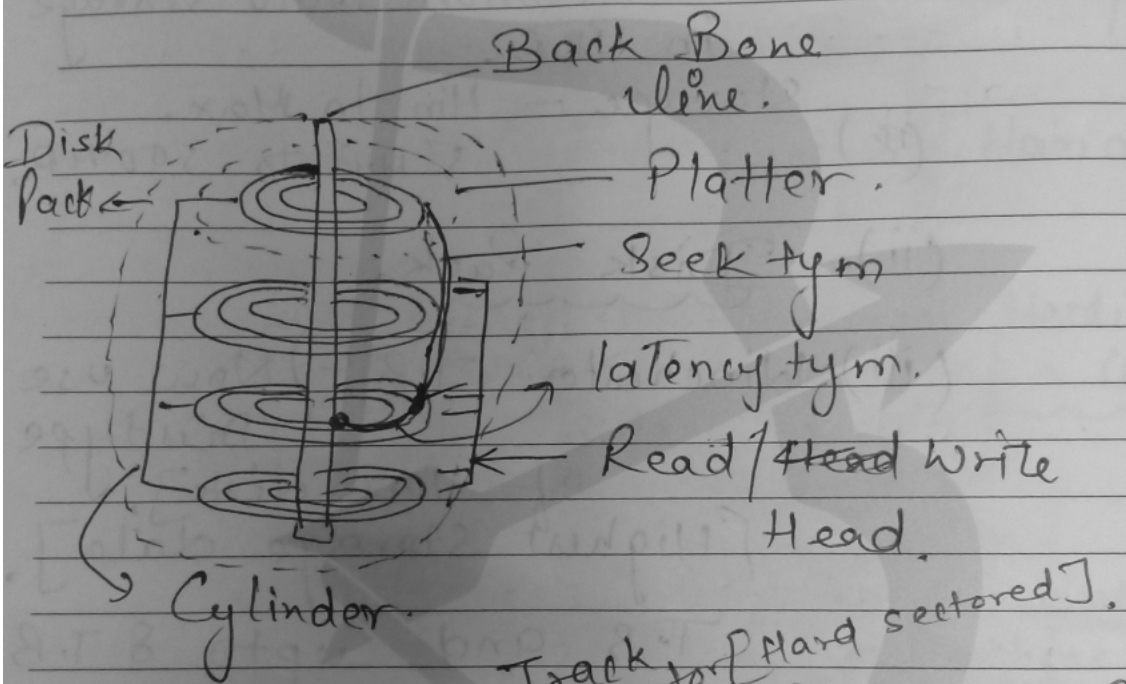 Back Bone
line.
Disk
Pack
Platter.
Seek tym
latency tym.
Read/Head Write
Head.
Cylinder.
Track for [Hard sectored].